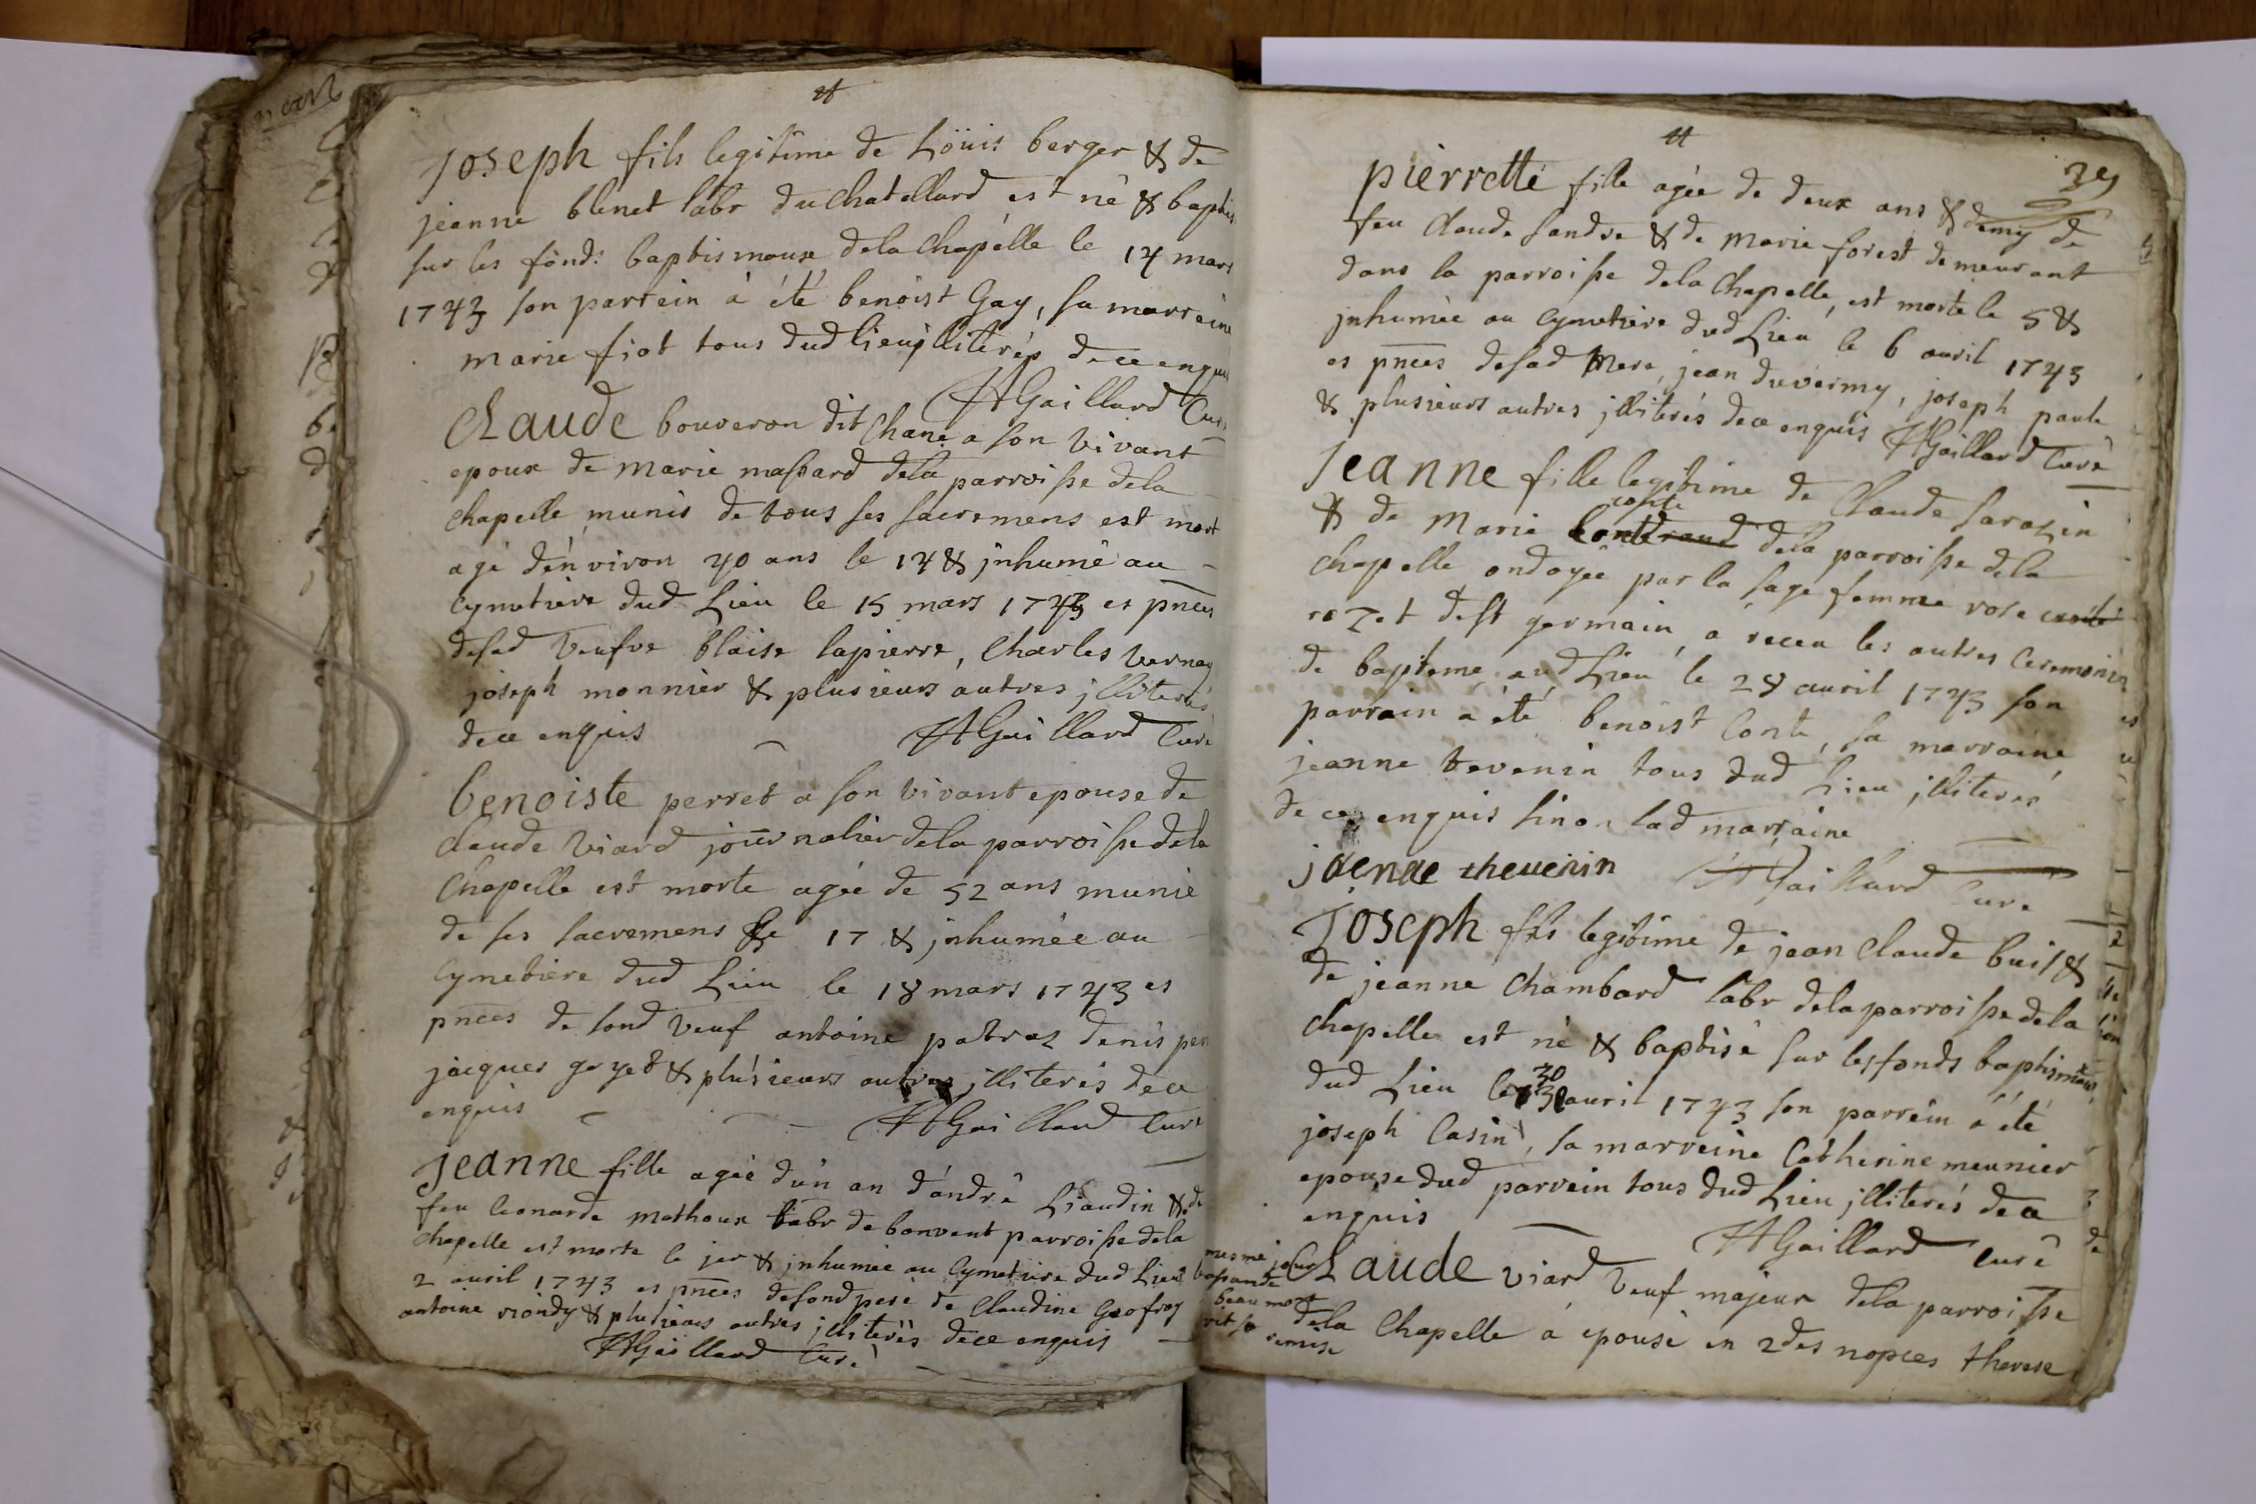 Joseph fils legitime de Löuis berger & de
jeanne blenet labr du Chatellard est né & baptis
sur les fönd: baptismaux dela Chapélle le 14 mars
1743 son parrein à été benoist Gay, sa marreine
marie fiot tous dud lieu illiterés dece enquis
AGaillard Curé
Claude bouveron dit Chane a son vivant
epoux de marie massard dela parroisse dela
chapelle munis de tous ses sacremens est mort
agé d'énviron 40 ans le 14 & jnhumé au
Cymetiere dud Lieu le 15 mars 1743 es pnces
desad Veufve blaise lapierre, Charles Vernay
joseph monnier & plusieurs autres jlliterés
dece enquis AGaillard Curé
benoiste perret a son vivant epouse de
claude Viard journalier dela parroisse dela
Chapelle est morte agée de 52 ans munie
de ses sacremens Le 17 & jnhumée au
Cymetiere dud Lieu le 18 mars 1743 es
pnces de sond Veuf antoine patraz denis per
jacques goyet & plusieurs autres jlliterés dece
enquis AGaillard Curé
Jeanne fille agée d'un an d'andré Liaudin & de
feu leonarde mathoux labr de bonvent parroisse dela
Chapelle est morte le jer & jnhumée au Cymetiere dud Lieu le
2 avril 1743 es pnces desond pere de Claudine Geofroy
antoine riondy & plusieurs autres jlliterés dece enquis
AGaillard Curé
39
pierrette fille agée de deux ans & demy de
feu Claude Landre & de Marie forest demeurant
dans la parroisse dela Chapelle, est morte le 5 &
jnhumée au Cymetiere dud Lieu le 6 avril 1743
es pnces desad Mere, jean duvermy, joseph paule
& plusieurs autres jlliterés dece enquis AGaillard Curé
Jeanne fille legitime de Claude Sarazin
conte
& de Marie dela parroisse dela
Chapelle ondoyée par la sage femme rose
rozet de St germain, a receu les autres Ceremonies
de bapteme aud Lieu le 28 avril 1743 son
parrain a été benoist Conte, sa marraine
jeanne tevenin tous dud Lieu jlliterés
de ce enquis sinon lad marraine
jaenae thevenin AGaillard Curé
Joseph fils legitime de jean Claude buis &
de jeanne Chambard labr dela parroisse dela
Chapelle est né & baptisé sur les fonds baptismaux
30
dud Lieu le avril 1743 son parrein a été
joseph Casin, sa marreine Catherine meunier
epouse dud parrein tous dud Lieu jlliterés dece
enquis AGaillard Curé
Claude viard Veuf majeur dela parroisse
dela Chapelle a epousé en 2des nopces therese
mesme jour
beaumont
remise